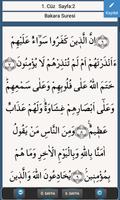 1. Cüz Sayfa:2
Kaydet
Bakara Suresi
اِنَّ الَّذ۪ينَ كَفَرُوا سَوَٓاءٌ عَلَيْهِمْ
ءَاَنْذَرْتَهُمْ اَمْ لَمْ تُنْذِرْهُمْ لَا يُؤْمِنُونَ
خَتَمَ اللّٰهُ عَلٰى قُلُوبِهِمْ وَعَلٰى سَمْعِهِمْ
وَعَلٰٓى اَبْصَارِهِمْ غِشَاوَةٌ وَلَهُمْ
عَذَابٌ عَظ۪يمٌ وَمِنَ النَّاسِ مَنْ يَقُولُ
اٰمَنَّا بِاللّٰهِ وَبِالْيَوْمِ الْاٰخِرِ وَمَا هُمْ
بِمُؤْمِن۪ينَ يُخَادِعُونَ اللّٰهَ وَالَّذ۪ينَ